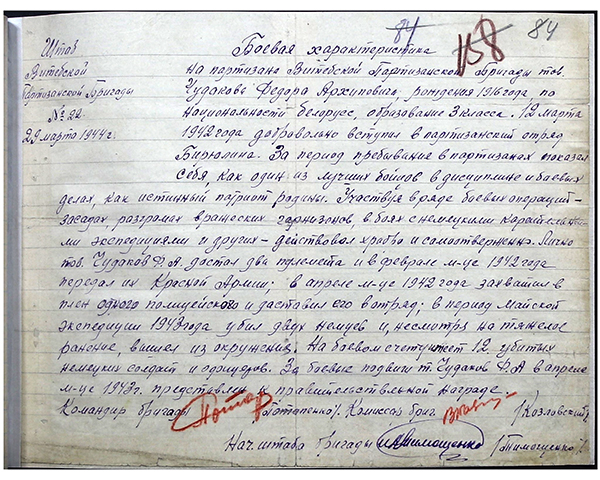 84 158 84
Штаб
Витебской
Партизанской Бригады
№ 22
29 марта 1944 г.
Боевая характеристика
На партизана Витебской Партизанской Бригады тов.
Чудакова Федора Архиповича, рождения 1916 года по
национальности беларус, образование 3 класса. 12 марта
1942 года добровольно вступил в партизанский отряд
Бирюлина. За период пребывание в партизанах показал
себя, как один из лучших бойцов в дисциплине и боевых
делах, как истинный патриот родины. Участвуя в ряде боевых операций-
засадах, разгромах вражеских гарнизонов, в боях с немецкими карательны-
ми экспедициями и других - действовал храбро и самоотверженно. Лично
тов. Чудаков Ф.А. достал два пулемета и в феврале м-це 1942 года
передал их Красной Армии; в апреле м-це 1942 года захватил в
плен одного полицейского и доставил его в отряд; в период Майской
экспедиции 1943 года убил двух немцев и, несмотря на тяжелое
ранение, вышел из окружения. На боевом счету имеет 12 убитых
немецких солдат и офицеров. За боевые подвиги т. Чудаков Ф.А в апреле
м-це 1943 г. представлен к правительственной награде.
Командир бригады /Потапенко/. Комиссар бриг /Козловский/
Нач. штаба бригады Тимощенко /Тимощенко/